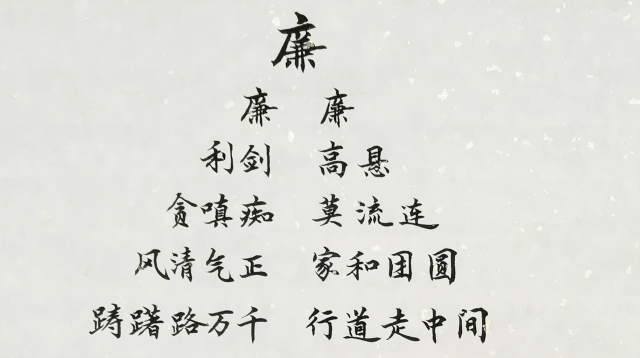 廉
廉 廉
利剑 高悬
贪嗔痴 莫流连
风清气正 家和团圆
踌躇路万千 行道走中间